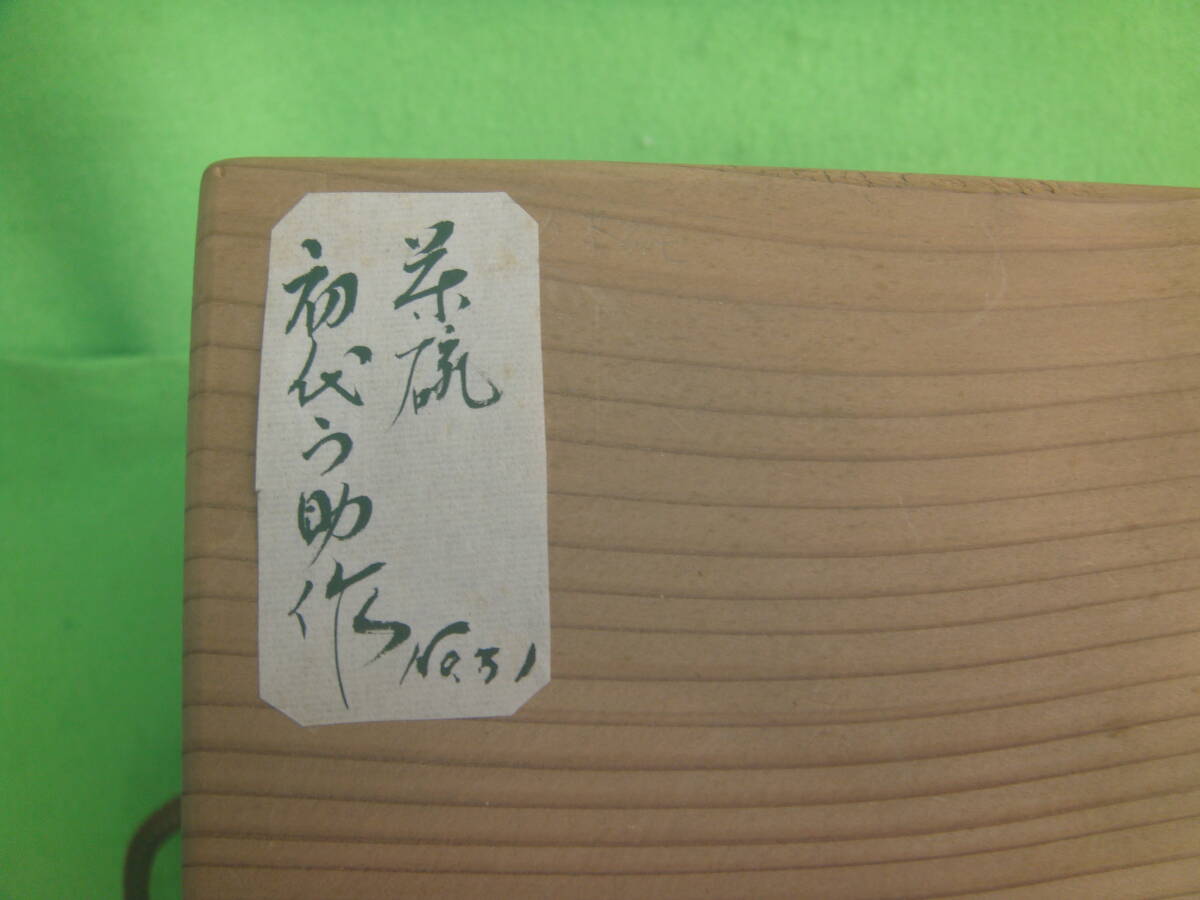 茶碗
初代う助作
No.51